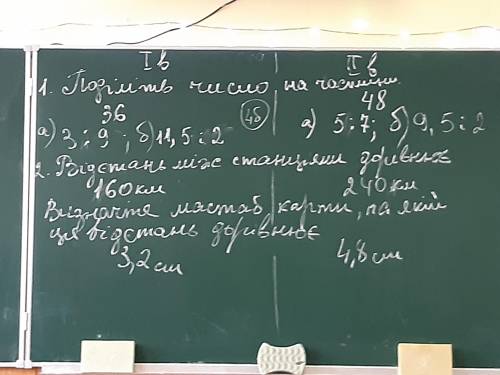 I в II в
1. Поділіть число на частини
36 48
а) 3 : 9 ; б) 11,5 : 2 (45) а) 5 : 7; б) 9,5 : 2
2. Відстань між станціями дорівнює
160 км 240 км
Визначте мастаб карти, на якій
ця відстань дорівнює
3,2 см 4,8 см